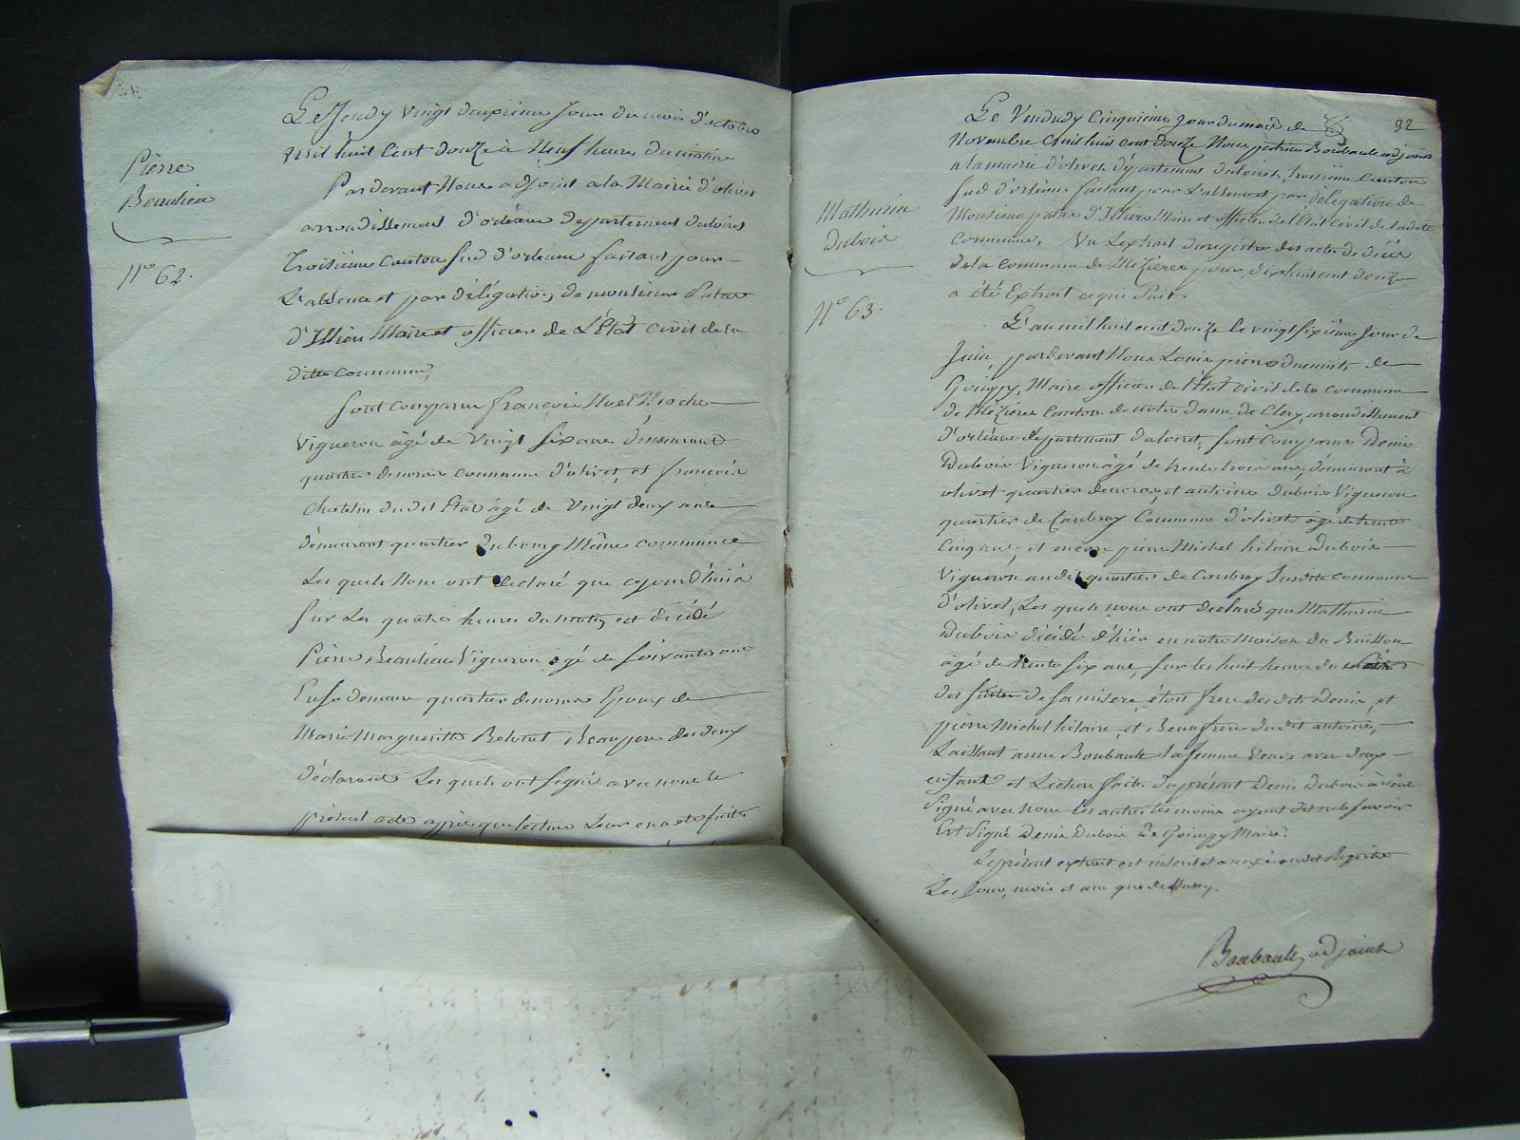 Pierre
Beaulieu
N° 62.
Le Jeudy vingt deuxième jour du mois d'octobre
mil huit Cent douze à Neuf heures du matin
Pardevant Nous adjoint a la Mairie d'olivet
arrondissement d'orléans departement du loiret
Troisième Canton sud d'orléans faisant pour
L'absence et par délégation de monsieur
d'Illiers Maire et officier de L'État civil de la
ditte commune,
sont comparus françois Noel
vigneron âgé de vingt six ans demeurant
quartier de commune d'olivet, et françois
du dit Etat âgé de vingt deux ans
demeurant quartier du bourg Même commune
Les quels Nous ont declaré que cejourd'hui
sur Les quatre heures du matin, est décédé
Pierre Beaulieu Vigneron agé de soixante ans
En sa demeure quartier Epoux de
Marie Margueritte Beaupere des deux
déclarants Les quels ont signé avec nous le
présent acte après que lecture Leur en a été faitte
92
Mathurin
Dubois
N° 63.
Le Vendredy Cinquième jour du mois de
Novembre mil huit cent douze Nous Boubault adjoint
a la mairie d'olivet departement du loiret, troisième Canton
sud d'orléans faisant pour L'absence et par délégation de
Monsieur d'Illiers Maire et officier de l'Etat Civil de la ditte
Commune, Vu L'extrait du registre des actes de décès
de la Commune de Mézières pour, dix huit cent douze
a été Extrait ce qui suit.
L'an mil huit cent douze le vingt sixième jour de
Juin, pardevant Nous Louis de
Maire officier de l'État civil de la commune
de Mézières Canton de notre dame de Clery, arrondissement
d'orléans departement du loiret, sont comparus Denis
Dubois Vigneron âgé de trente trois ans, demeurant à
olivet quartier et antoine Dubois Vigneron
quartier de Commune d'olivet âgé de trente
Cinq ans, et encore pierre Michel hilaire Dubois
Vigneron au dit quartier de susdite commune
d'olivet, Les quels nous ont declaré que Mathurin
Dubois décédé d'hier en notre maison du Buisson
âgé de trente six ans, sur les huit heures du
des suites de sa misere, étoit frere des dits Denis, et
pierre Michel hilaire, et Beaufrere du dit antoine,
Laissant anne Boubault sa femme Veuve avec deux
enfants et Lecture faite du présent Denis Dubois à
Signé avec nous les autres les noms ayant déclaré savoir
Est Signé Denis Dubois Maire.
Le présent extrait est inscrit et annexé au dit Registre
Les Jour, mois et an que dessus.
Boubault, adjoint